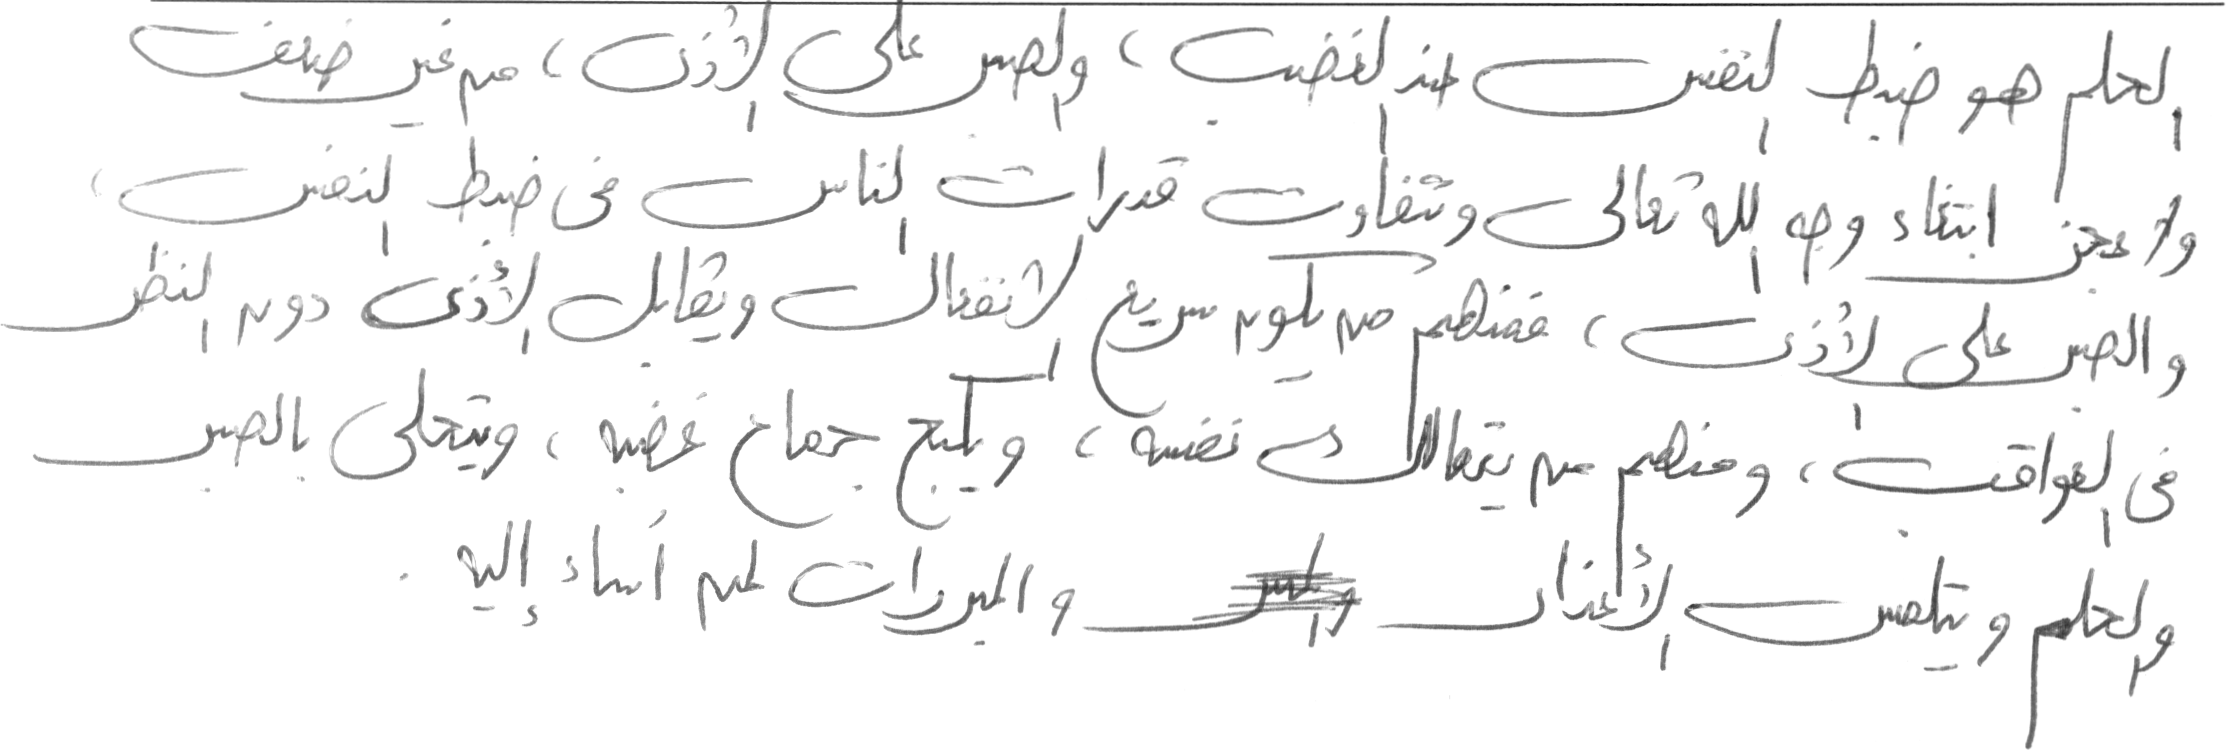 الحلم هو ضبط النفس عند الغضب ، والصبر على الأذى ، من غير ضعف
ولا عجز ابتغاء وجه الله تعالى وتتفاوت قدرات الناس في ضبط النفس ،
والصبر على الأذى ، فمنهم من يكون سريع الانفعال ويقابل الأذى دون النظر
في العواقب ، ومنهم من يتمالك نفسه ، ويكبح جماح غضبه ، ويتحلى بالصبر
والحلم ويتلمس الأعذار والمبررات لمن أساء إليه .